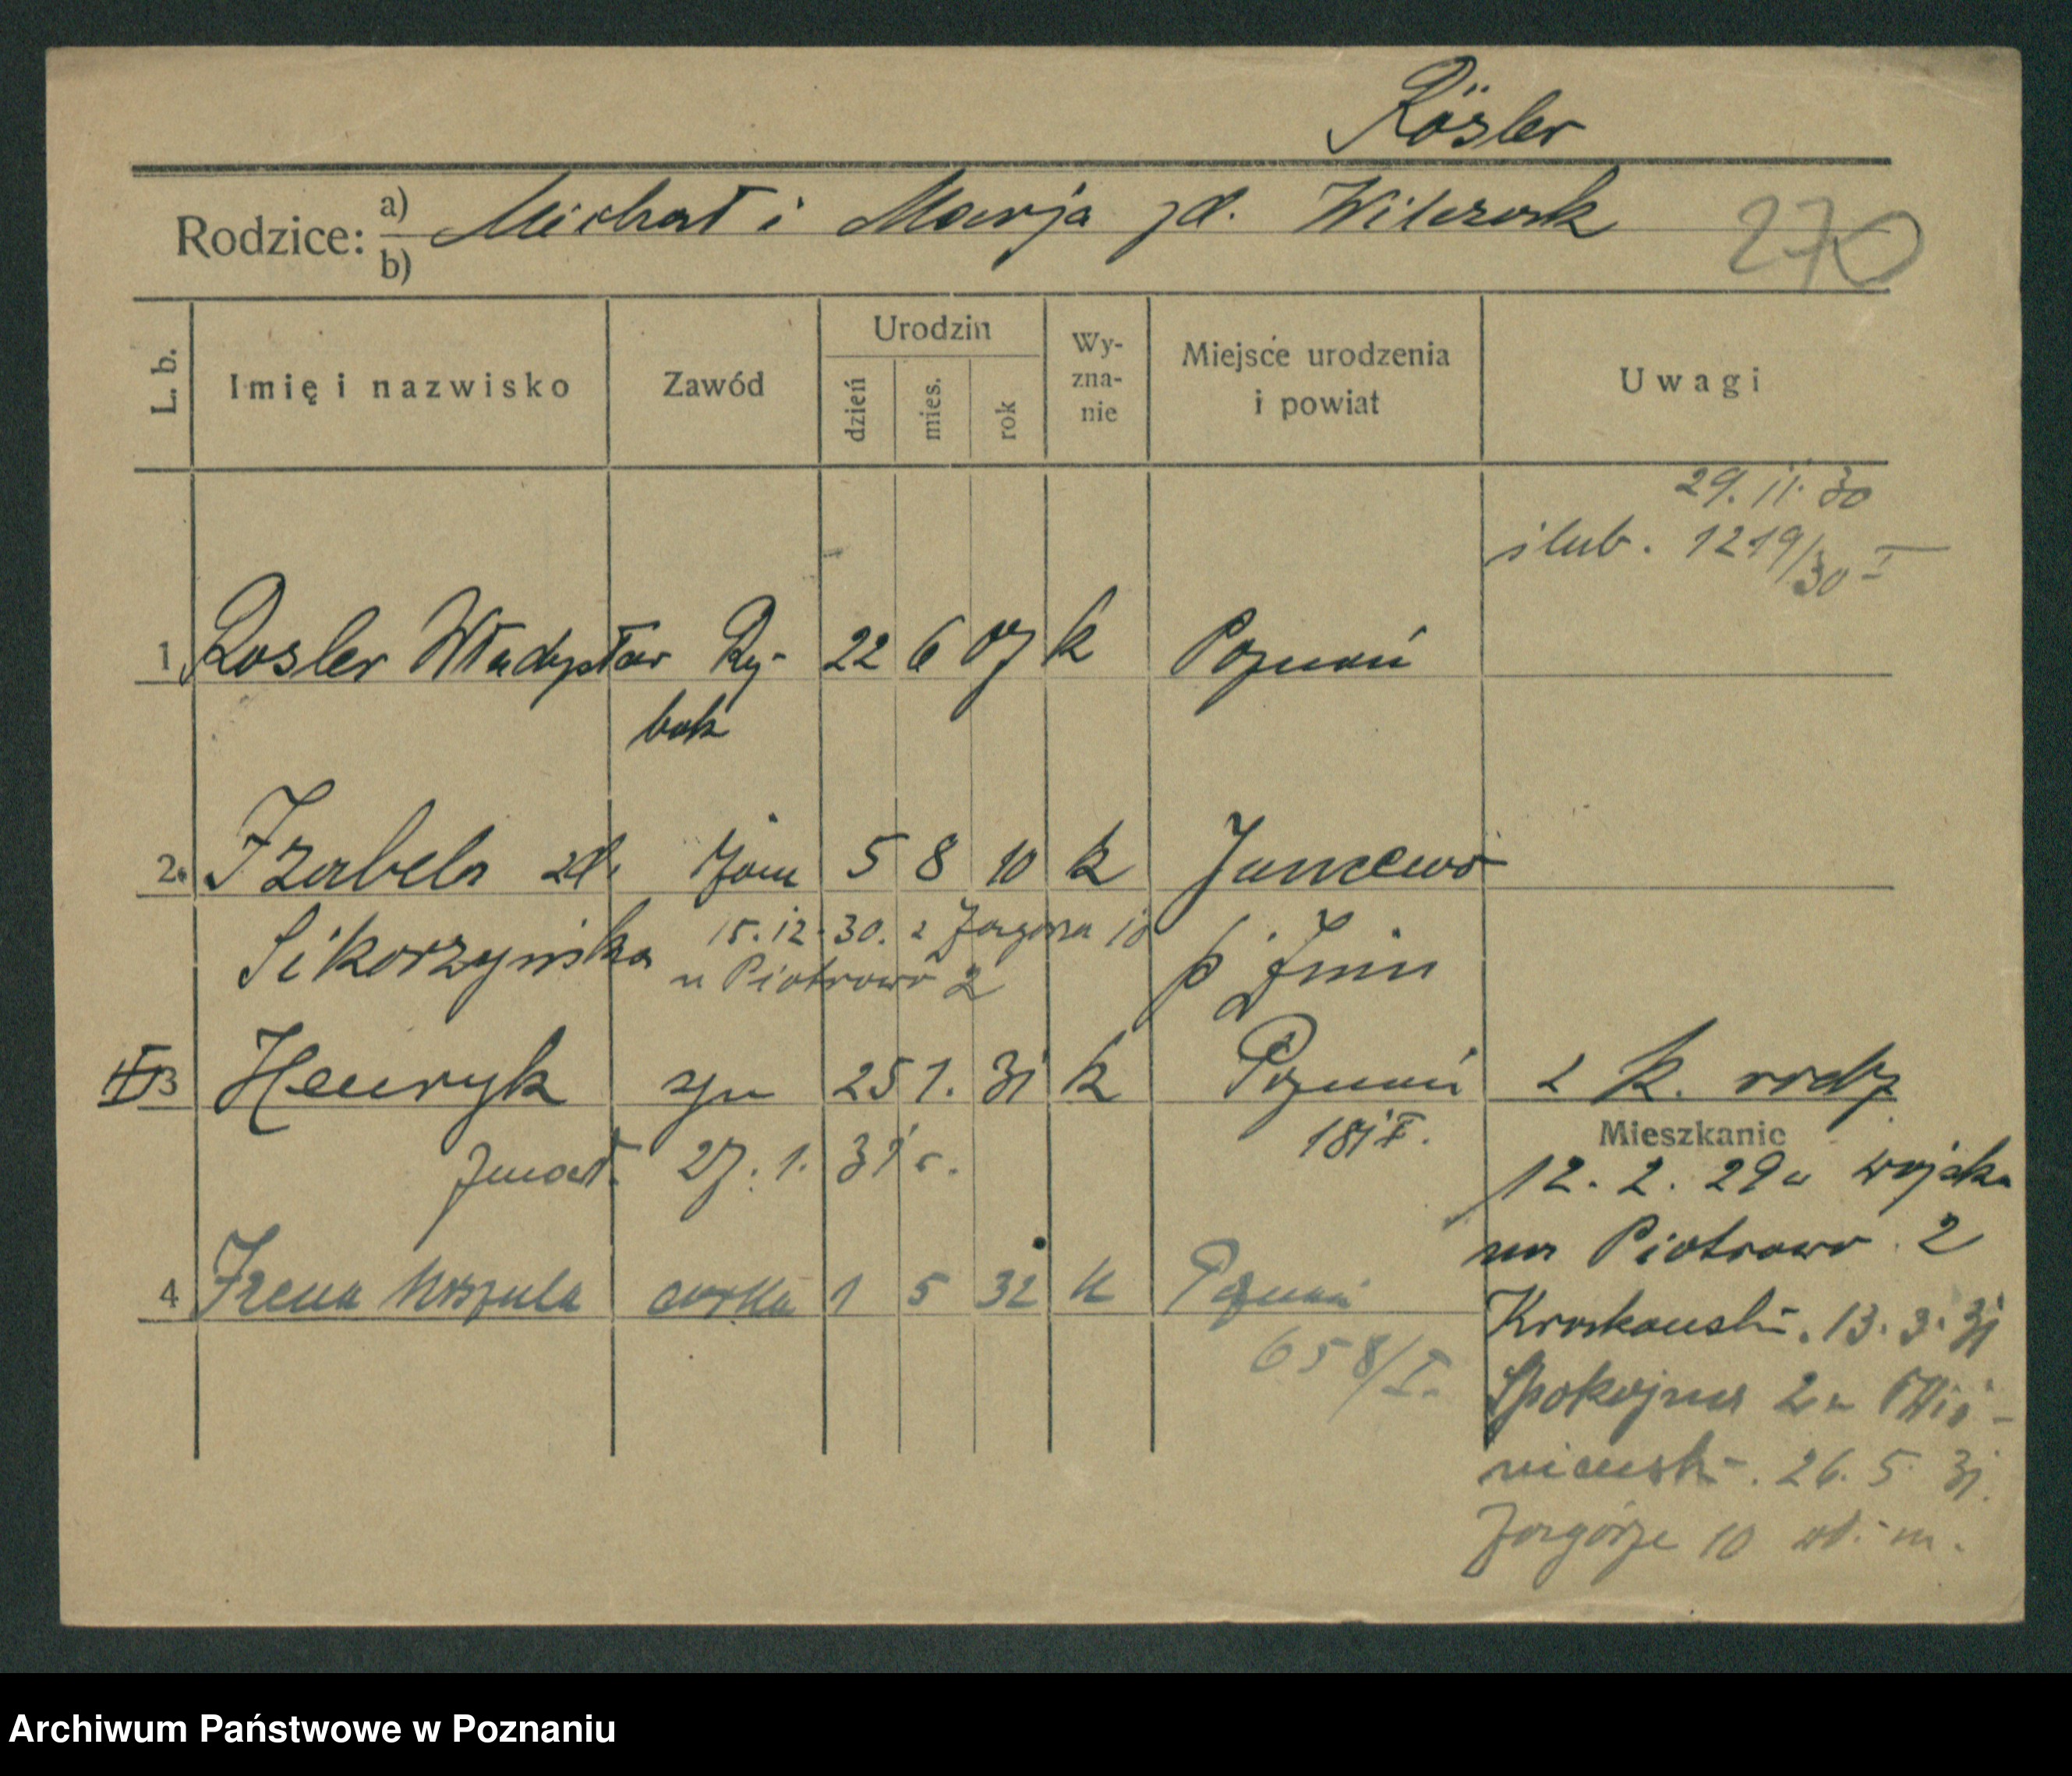 Rösler
Rodzice: a) b) Michał i Marja zd. Wilczak 270
L. b. Imię i nazwisko Zawód Urodzin dzień mies. rok Wy-zna-nie Miejsce urodzenia i powiat Uwagi
29. 11. 30
ślub. 1219/30 I
1 Rosler Władysław Ry- 22 6 07 k Poznań
bak
2. Izabela zd. żona 5 8 10 k Janczewo
Sikorzyńska 15. 12. 30. z Zagórza 10 p. Żnin
u Piotrowo 2
3 Henryk syn 25 1. 31 k Poznań z k. rodz
181 I.
Mieszkanie
zmarł. 27. 1. 31 r.
12. 2. 29 z wojska
na Piotrowo 2
4 Irena Urszula córka 1 5 32 k Poznań
658/I.
13. 3. 31
Spokojna 2 u
26. 5. 31.
Zagórze 10 wł. m.